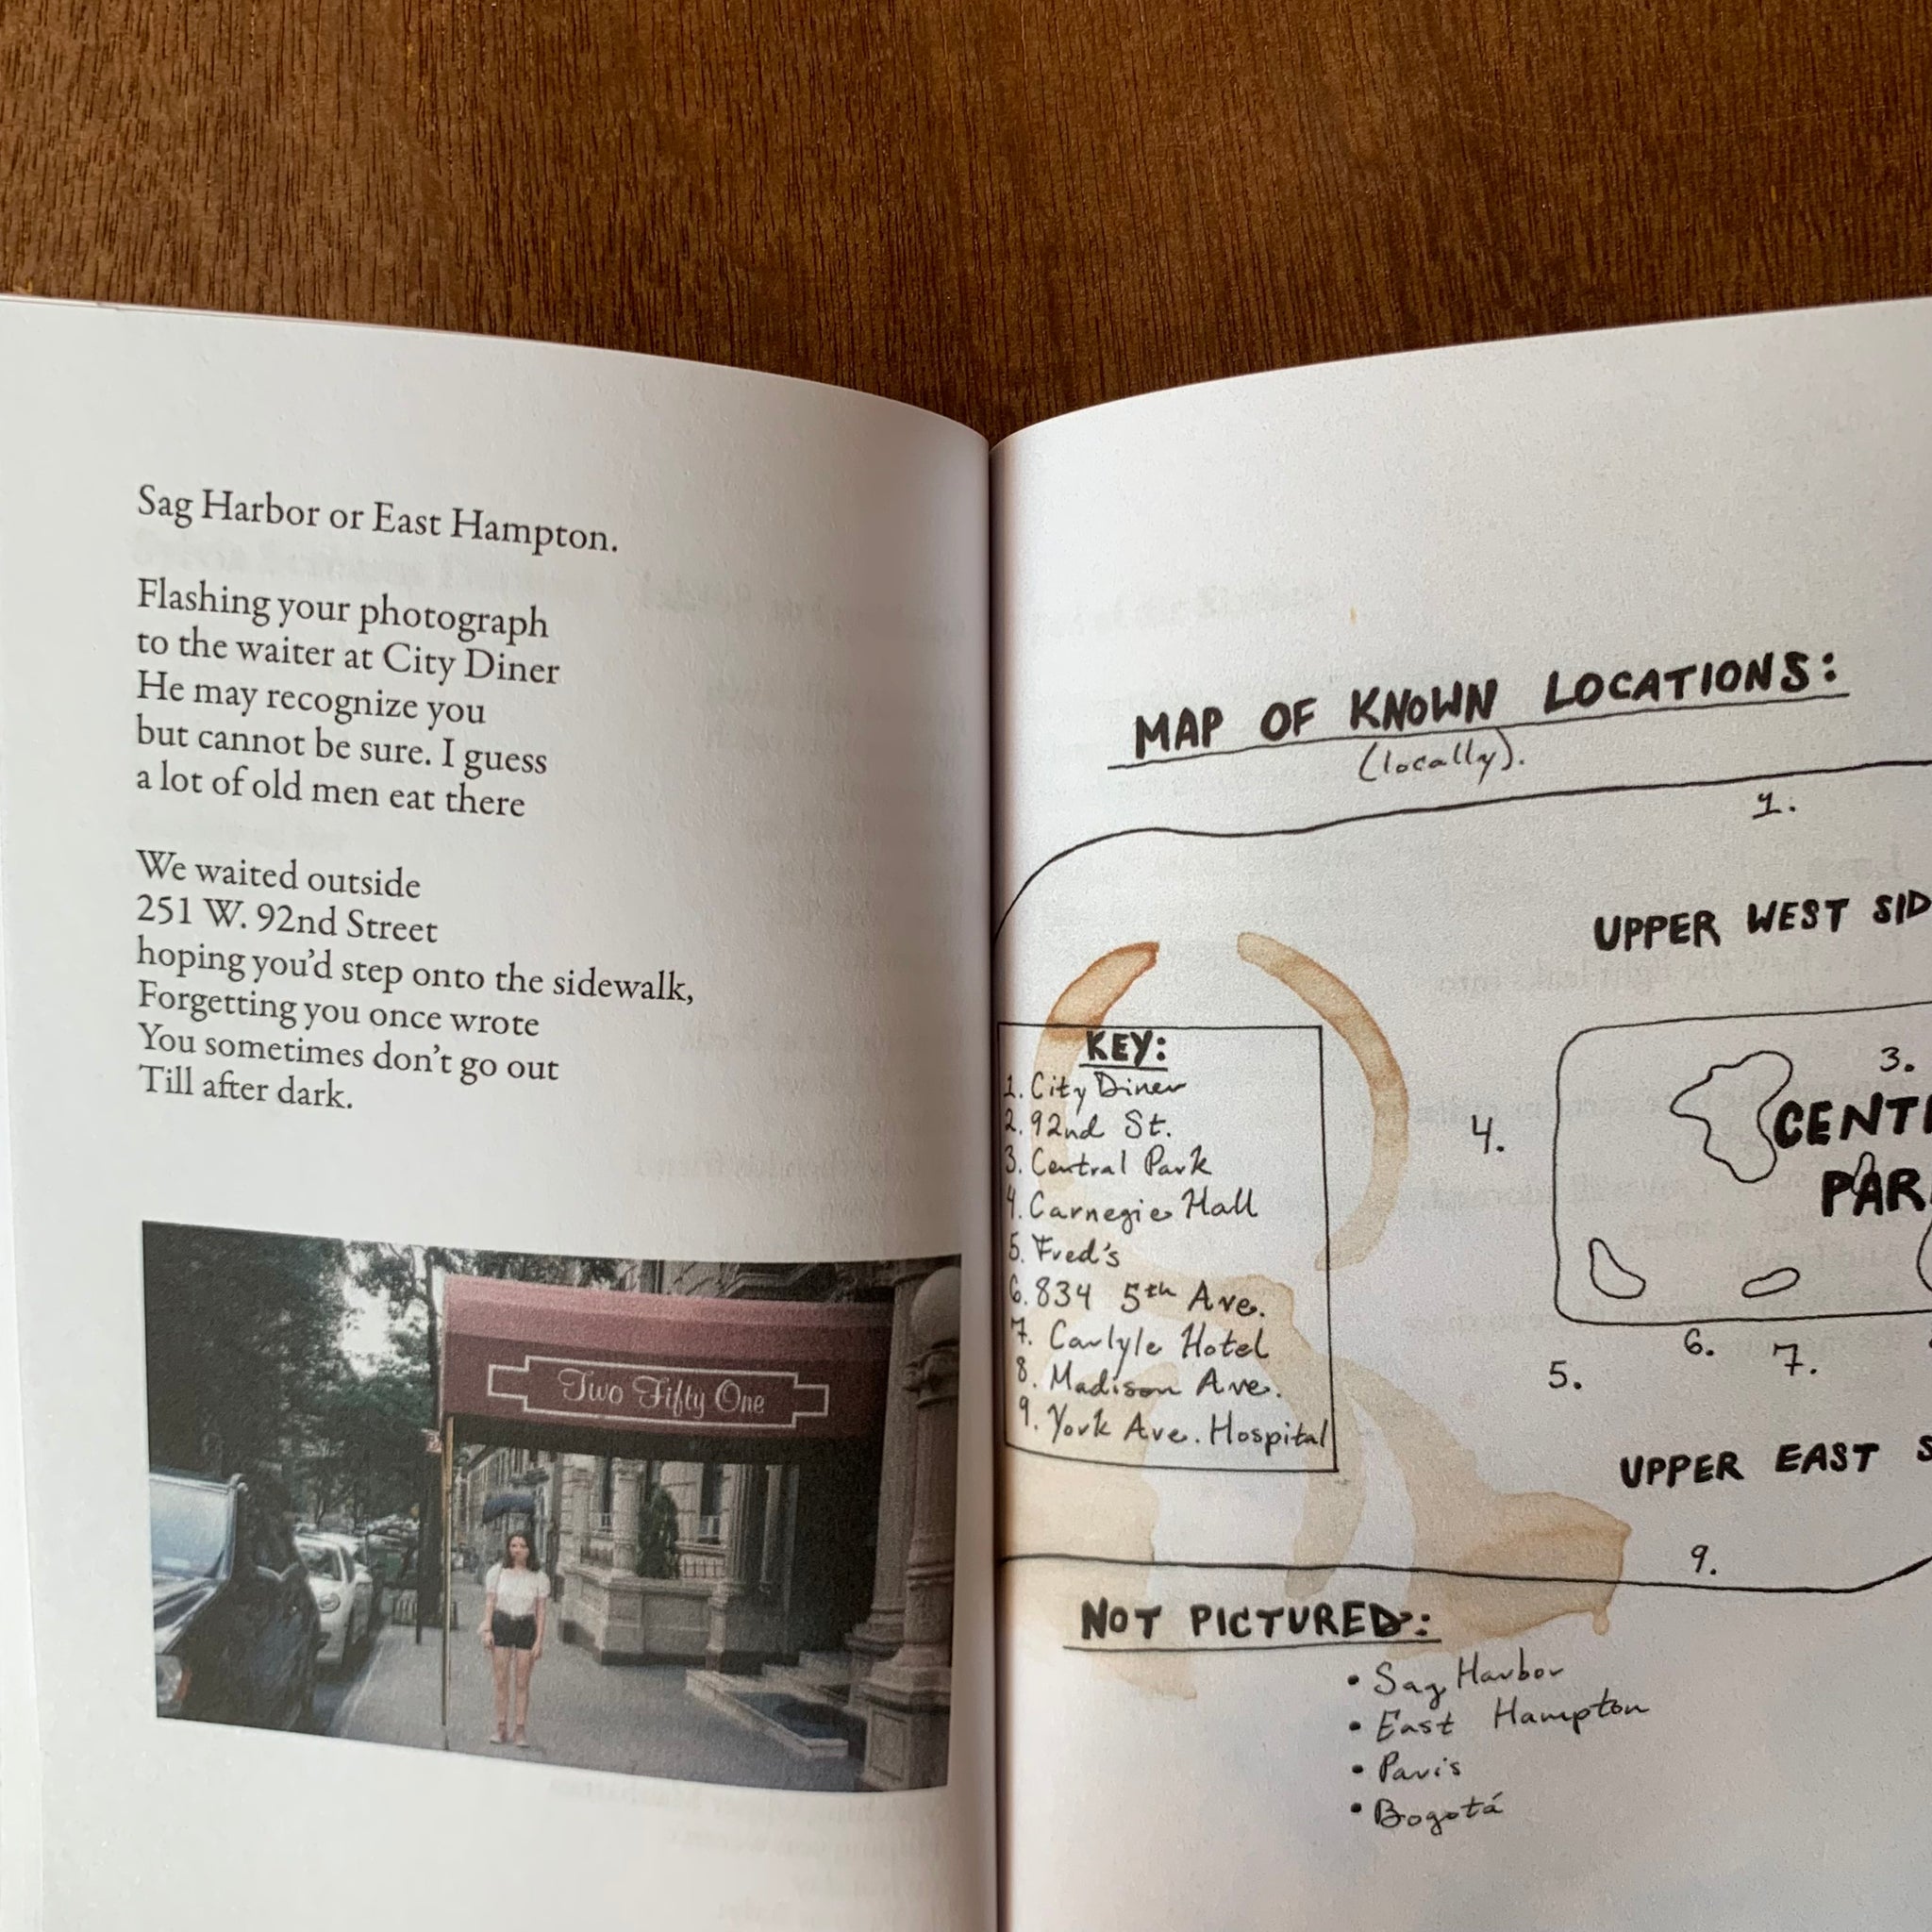 Sag Harbor or East Hampton.
Flashing your photograph
to the waiter at City Diner
He may recognize you
but cannot be sure. I guess
a lot of old men eat there
We waited outside
251 W. 92nd Street
hoping you'd step onto the sidewalk,
Forgetting you once wrote
You sometimes don't go out
Till after dark.
Two Fifty One
MAP OF KNOWN LOCATIONS:
(locally).
1.
UPPER WEST SID
KEY:
1. City Diner
2. 92nd St.
3. Central Park
4. Carnegie Hall
5. Fred's
6. 834 5th Ave.
7. Carlyle Hotel
8. Madison Ave.
9. York Ave. Hospital
3.
CENT
PAR
4.
6.
7.
5.
UPPER EAST S
9.
NOT PICTURED:
• Sag Harbor
• East Hampton
• Paris
• Bogotá